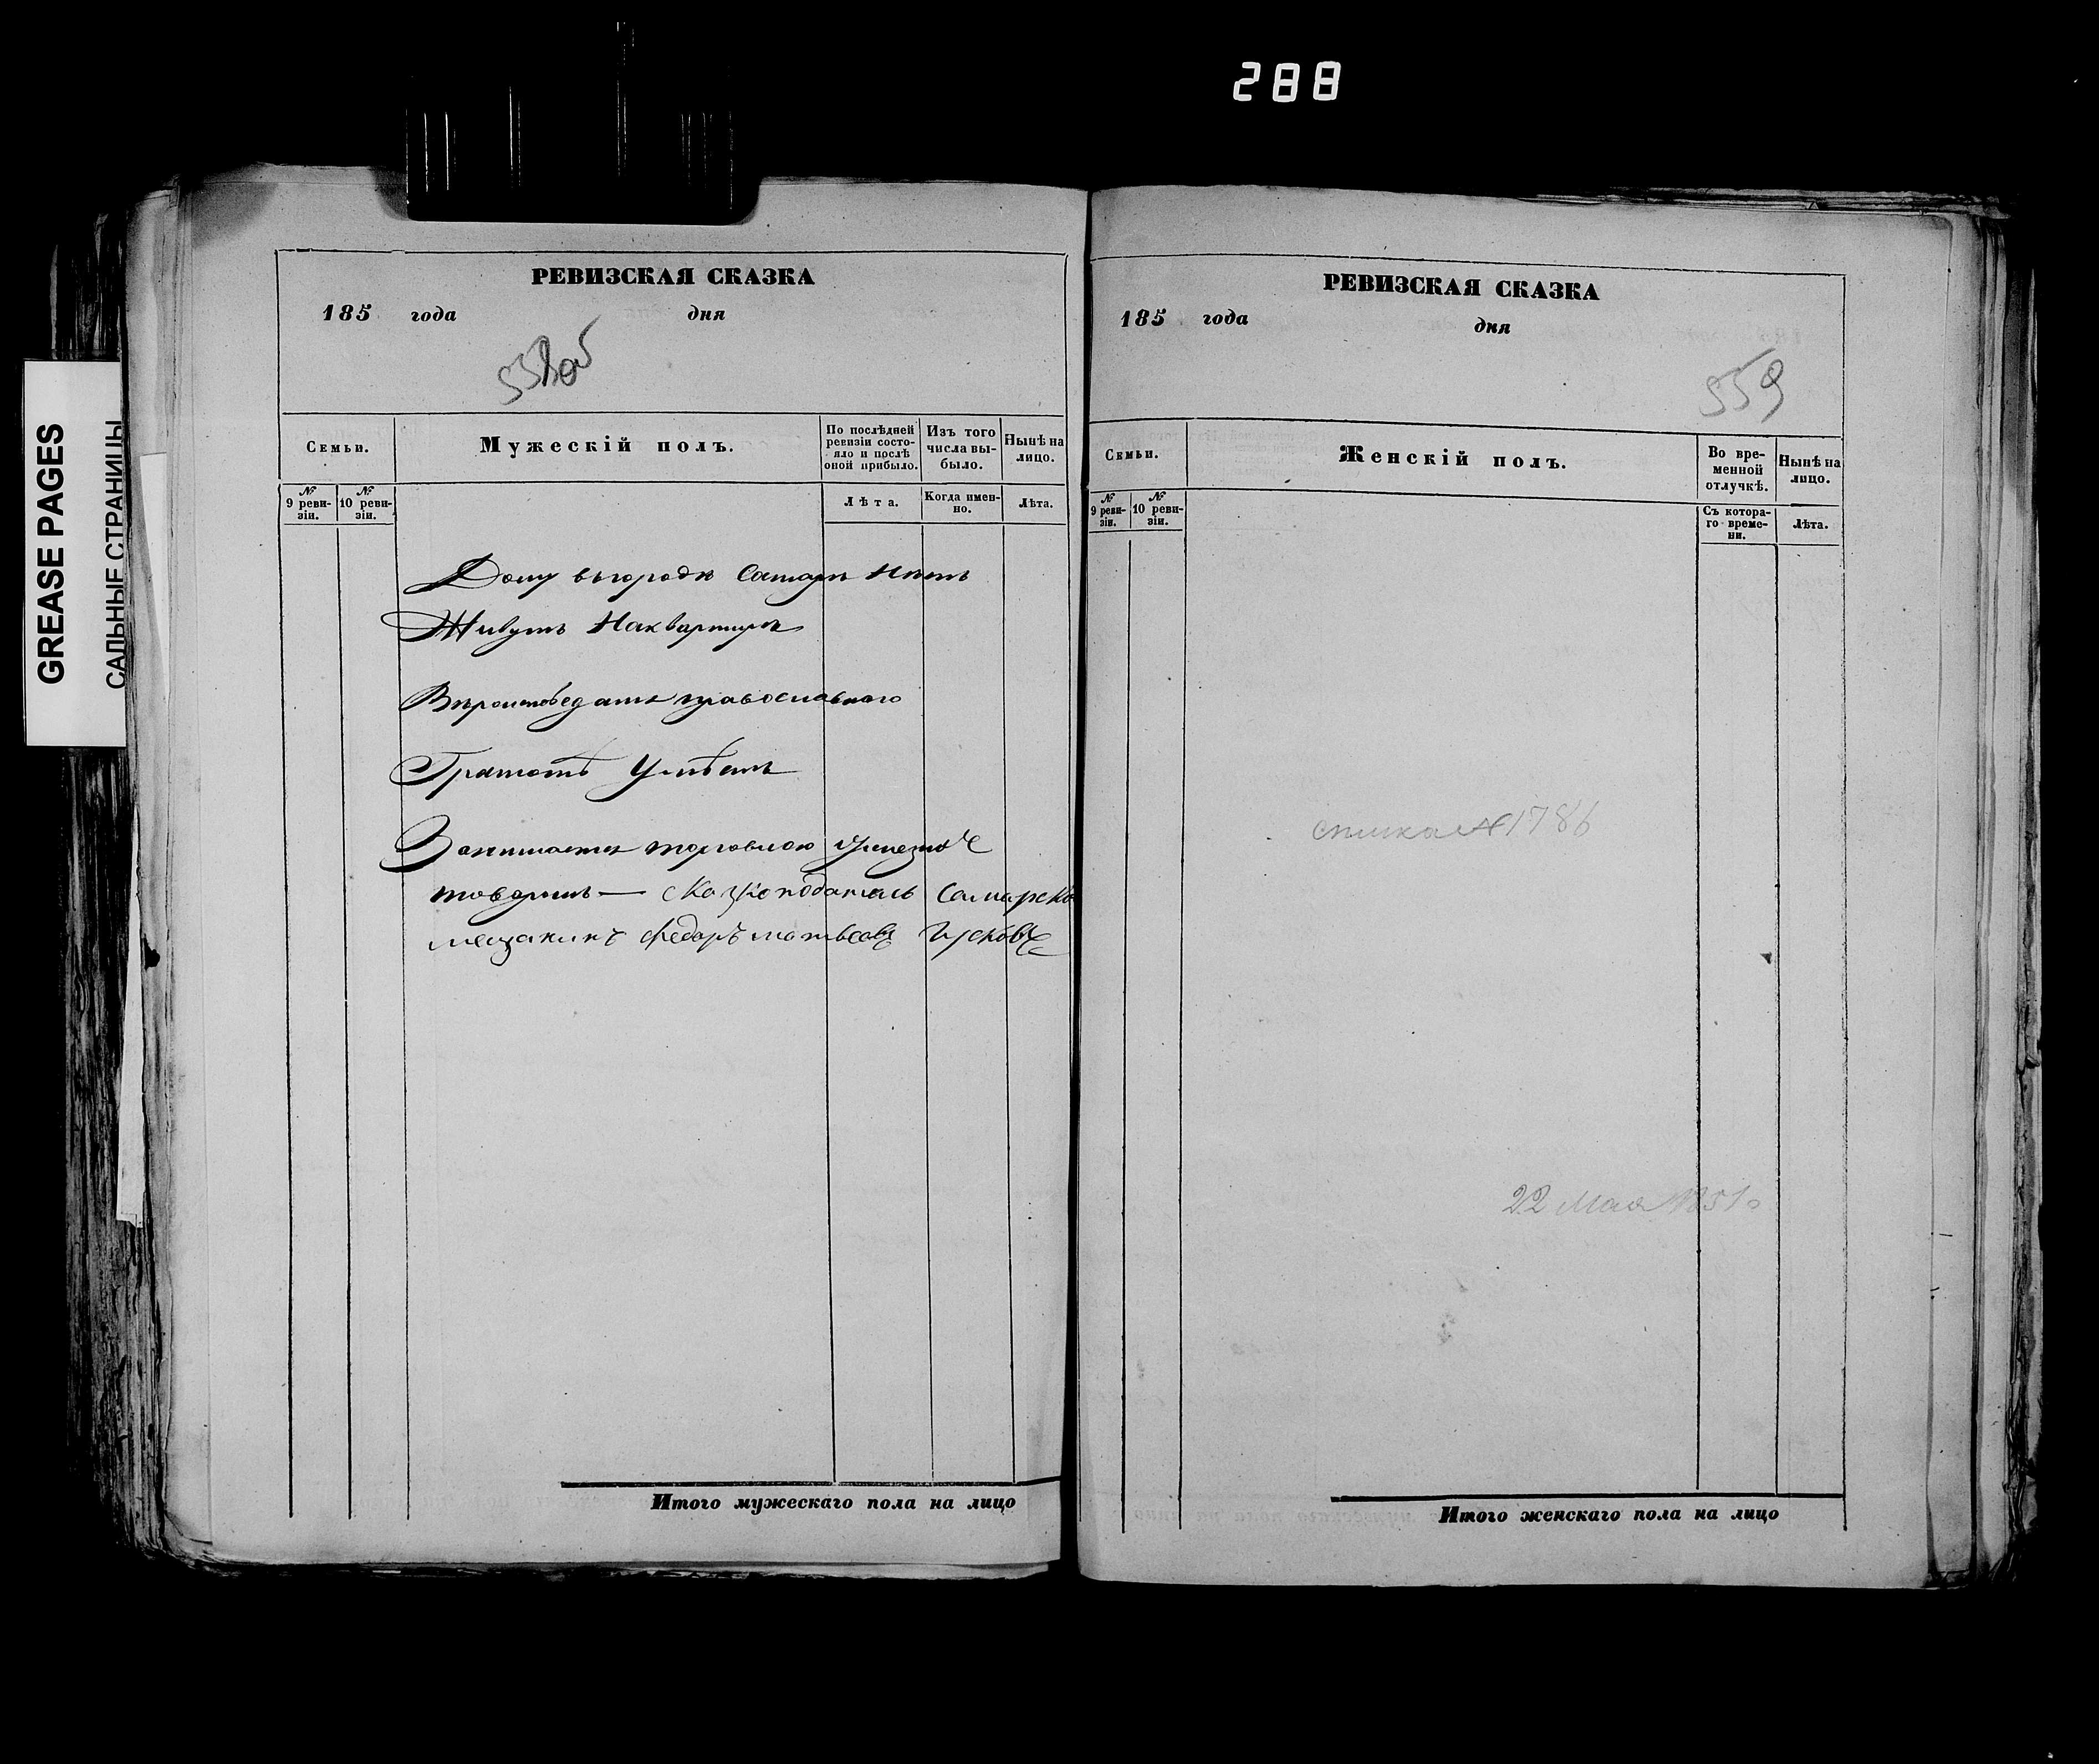 288
GREASE PAGES
САЛЬНЫЕ СТРАНИЦЫ
РЕВИЗСКАЯ СКАЗКА
185 года дня
558об
Семьи.
Мужескій полъ.
По послѣдней ревизіи состояло и послѣ оной прибыло.
Изъ того числа выбыло.
Нынѣ на лицо.
№ 9 ревизіи.
№ 10 ревизіи.
Лѣта.
Когда именно.
Лѣта.
Дому вьгородѣ Самарѣ Нѣтъ
Живутъ Наквартирѣ
православнаго
Грамотѣ Умѣетъ
Занимается торговлою
товаромъ — Сказкоподатель Самарско
мещанинъ Федоръ матвеевъ
Итого мужескаго пола на лицо
РЕВИЗСКАЯ СКАЗКА
185 года дня
559
Семьи.
Женскій полъ.
Во временной отлучкѣ.
Нынѣ на лицо.
№ 9 ревизіи.
№ 10 ревизіи.
Съ котораго времени.
Лѣта.
списка № 1786
22 Мая 1851
Итого женскаго пола на лицо